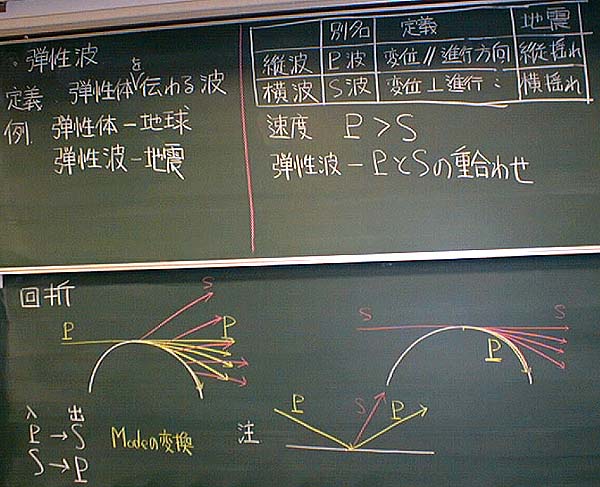 ・弾性波
定義 弾性体を伝わる波
例. 弾性体－地球
弾性波－地震
別名 定義 地震
縦波 P波 変位∥進行方向 縦揺れ
横波 S波 変位⊥進行〃 横揺れ
速度 P>S
弾性波－PとSの重合わせ
回折
P S P
S S
P
入 出
P→S Modeの変換
S→P
注 P S P